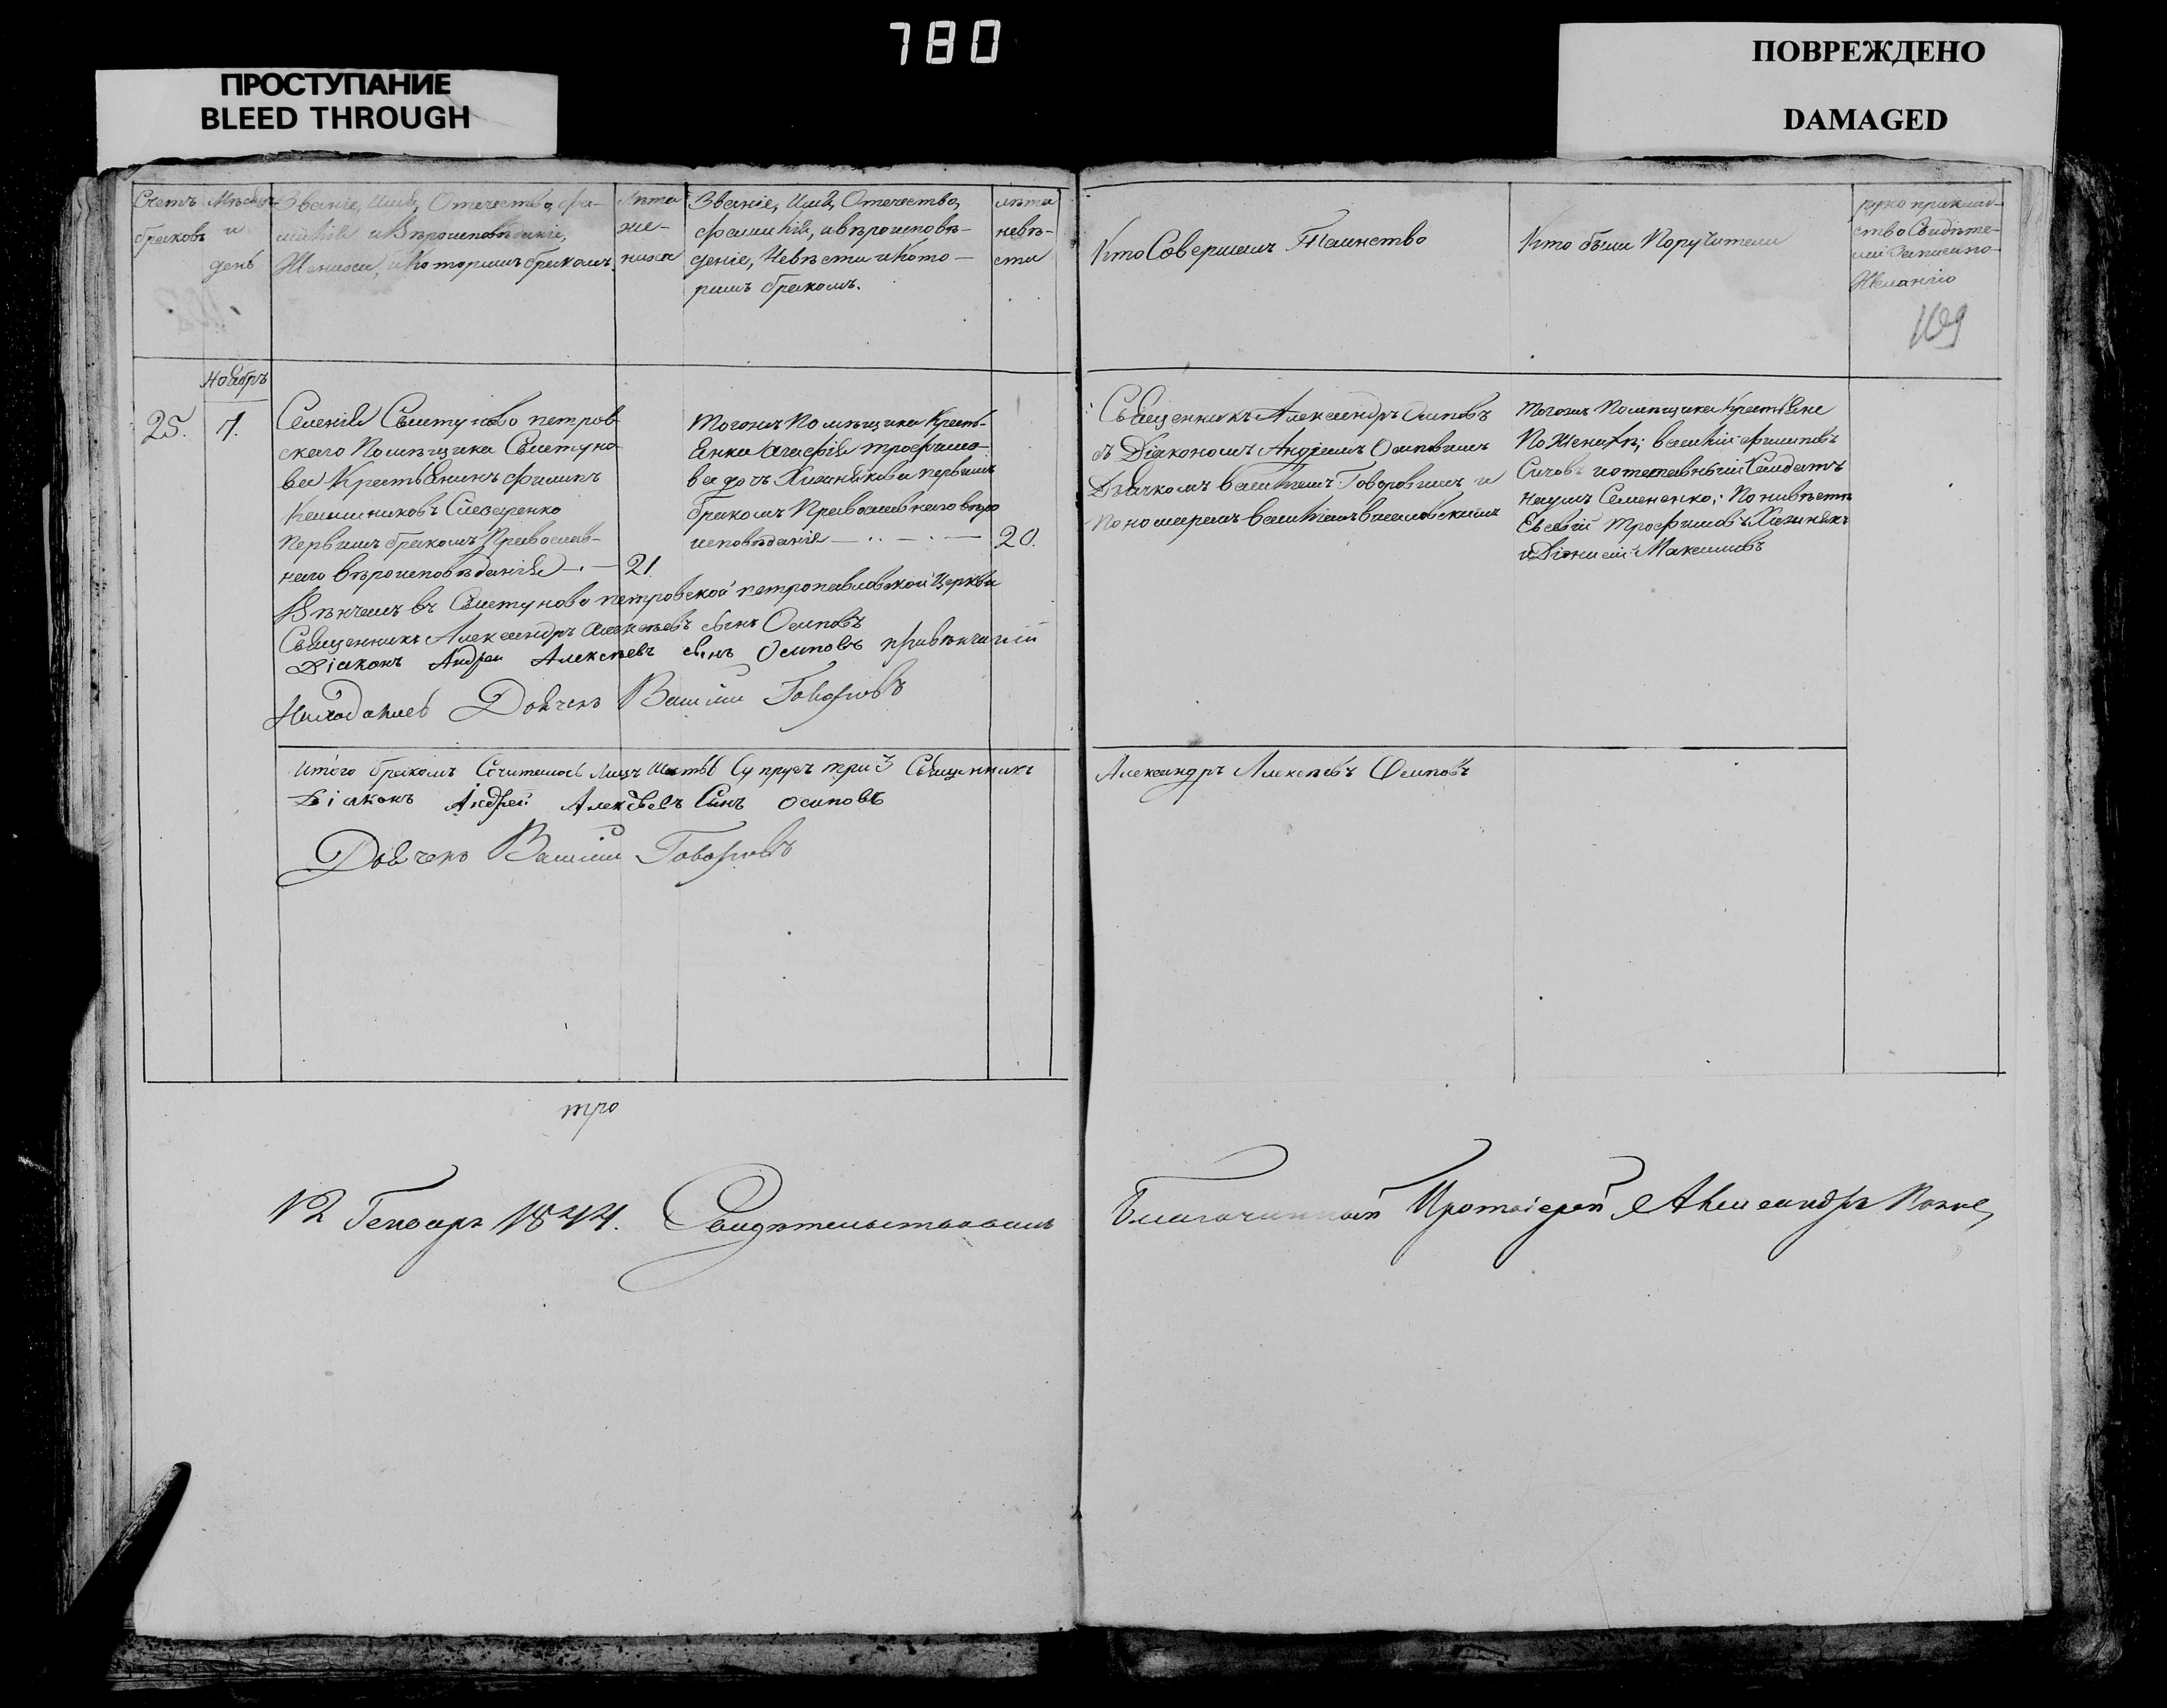 780
ПРОСТУПАНИЕ
BLEED THROUGH
ПОВРЕЖДЕНО
DAMAGED
Счетъ
браковъ
Мѣсяцъ
и
день
Званіе, Имя, Отечество, фа-
милія и Вѣроисповѣданіе,
Жениха, и Которимъ бракомъ
Лѣта
же-
ниха
Званіе, Имя, Отечество,
фамилія, и вѣроисповѣ-
деніе, Невѣсти и Кото-
римъ бракомъ.
лѣта
невѣ-
сти
Кто Совершалъ Таинство
Кто были Поручители
руко приклад-
ство Свидѣте-
лей записи по
Желанію
169
Ноябръ
25.
7.
Селенія Свистуново петров
скаго Помѣщика Свистуно
ва Крестьянинъ филипъ
Слесаренко
Первимъ бракомъ Православ-
наго вѣроисповѣданія
21.
тогожъ Помѣщика Кресть-
янка Агафія трофимо-
ва дочъ Хижнякова первимъ
бракомъ Православнаго вѣро
исповѣданія
20.
Священникъ Александръ Осиповъ
съ Діакономъ Андреемъ Осиповимъ
Дьячкомъ Василіемъ Говоровимъ и
Пономаремъ Василіемъ
тогожъ Помѣщика Крестьяне
По Женихѣ; Василій филиповъ
Сичовъ и отставный Солдатъ
Наумъ Семененко; По нивѣсти
Евсевій трофимовъ Хижнякъ
и Діонисій Максимовъ
Вѣнчалъ въ Свистуново петровской петропавловской Церкви
Священникъ Александръ Алексѣевъ сынъ Осиповъ
Діаконъ Андреи Алексѣевъ сынъ Осиповъ привѣнчаніи
Находился Дьячекъ Василіи Говоровъ
Итого бракомъ Сочиталось Лицъ Шесть Супругъ три 3 Священникъ
Александръ Алексѣевъ Осиповъ
Діаконъ Андрей Алексѣевъ Сынъ осиповъ
Дьячекъ Василіи Говоровъ
тро
12 Генваря 1844. Свидѣтельствовалъ
Благочинный Протоіерей Александръ